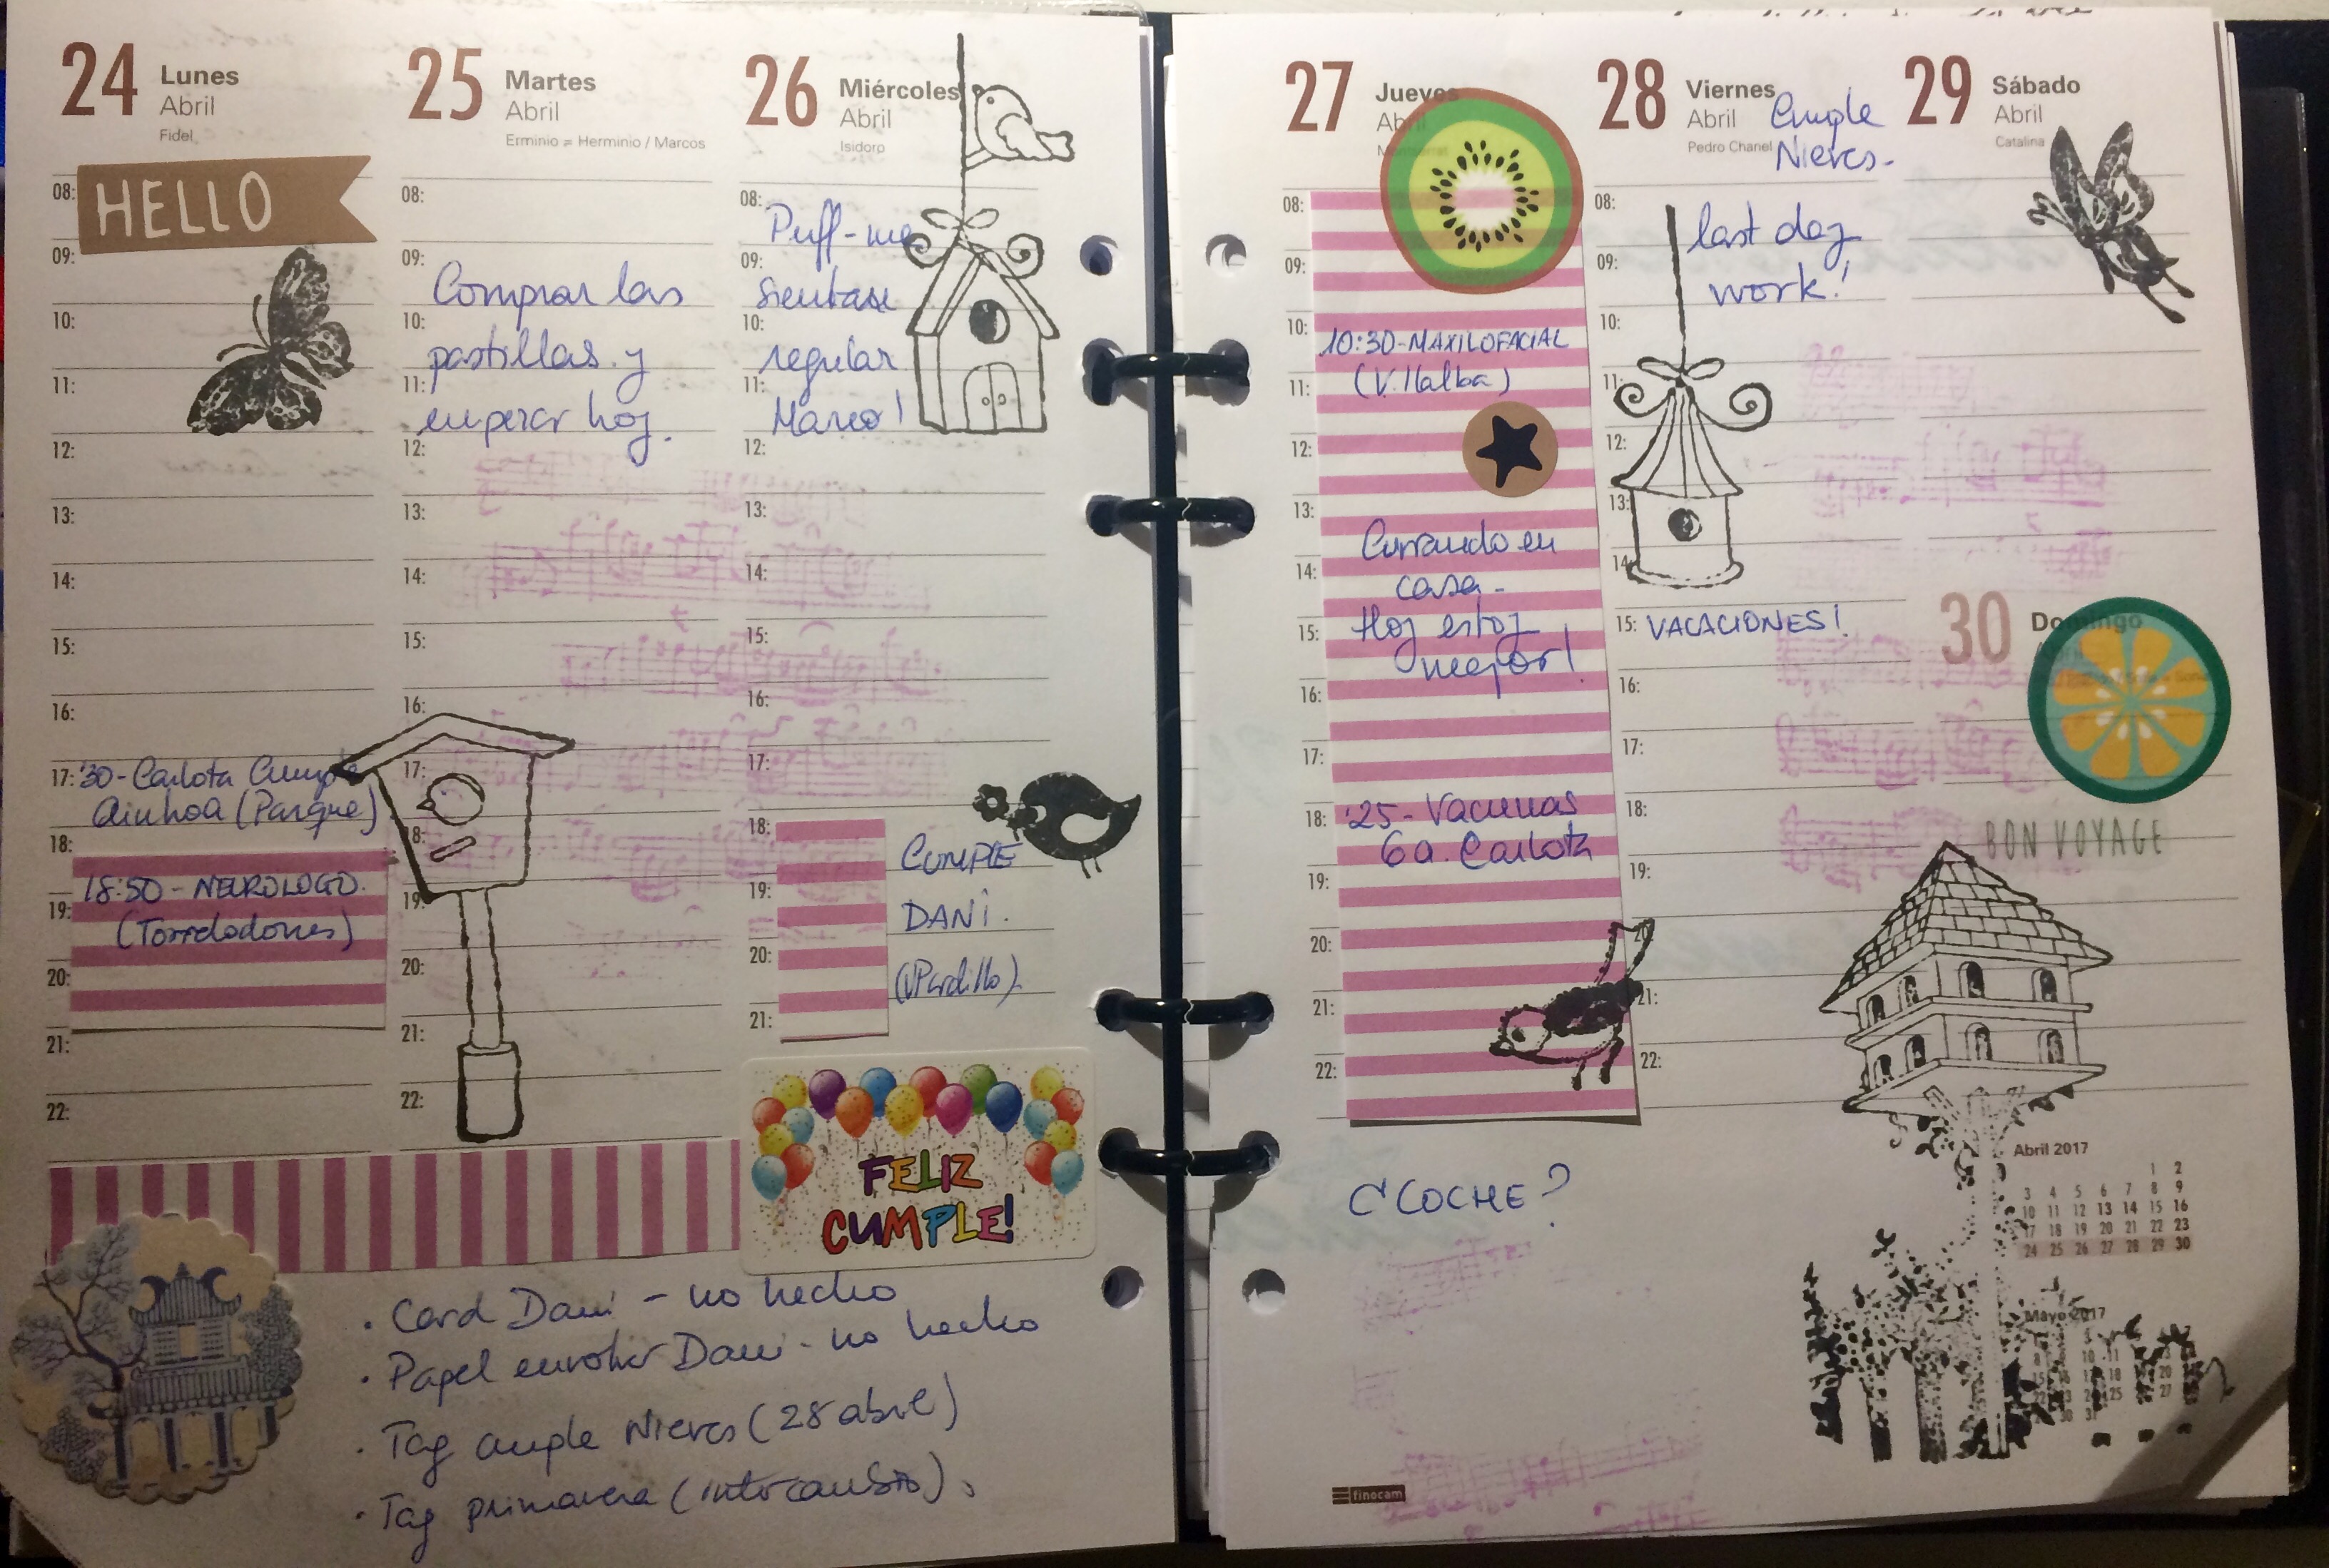 24 Lunes
Abril
Fidel
08:
HELLO
09:
10:
11:
12:
13:
14:
15:
16:
17: '30-Carlota Cumple
Ainhoa (Parque)
18:
18:50 - NEUROLOGO.
19:
(Torrelodones)
20:
21:
22:
25 Martes
Abril
Erminio = Herminio / Marcos
08:
09:
Comprar las
10:
pastillas y
11:
empezar hoy.
12:
13:
14:
15:
16:
17:
18:
19:
20:
21:
22:
26 Miércoles
Abril
Isidoro
08:
Puff-me
09:
sientan
10:
regular
11:
Mareo!
12:
13:
14:
15:
16:
17:
18:
CUMPLE
19:
DANI.
20:
(VPardillo)
21:
FELIZ
CUMPLE!
. Card Dani - no hecho
. Papel envolver Dani - no hecho
. Tag cumple Nieves (28 abril)
. Tag primavera (intercambio).
27 Jueves
Abril
08:
09:
10:
10:30-MAXILOFACIAL
11: (Villalba)
12:
13:
Currando en
14:
casa-
15: Hoy estoy
mejor!
16:
17:
18: '25- Vacunas
6a. Carlota
19:
20:
21:
22:
C'COCHE?
finocam
28 Viernes
Abril
Pedro Chanel
Cumple
Nieves.
08:
last day
09:
work!
10:
11:
12:
13:
14:
15: VACACIONES!
16:
17:
18:
19:
20:
21:
22:
29 Sábado
Abril
Catalina
30 Domingo
BON VOYAGE
Abril 2017
1 2
3 4 5 6 7 8 9
10 11 12 13 14 15 16
17 18 19 20 21 22 23
24 25 26 27 28 29 30
Mayo 2017